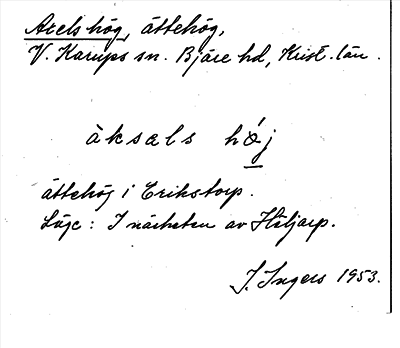 Axels hög, ättehög,
V. Karups sn. Bjäre hd, Krist. län.
àksals hǿj
ättehög i Erikstorp.
Läge: I närheten av Hiljarp.
J. Ingers 1953.